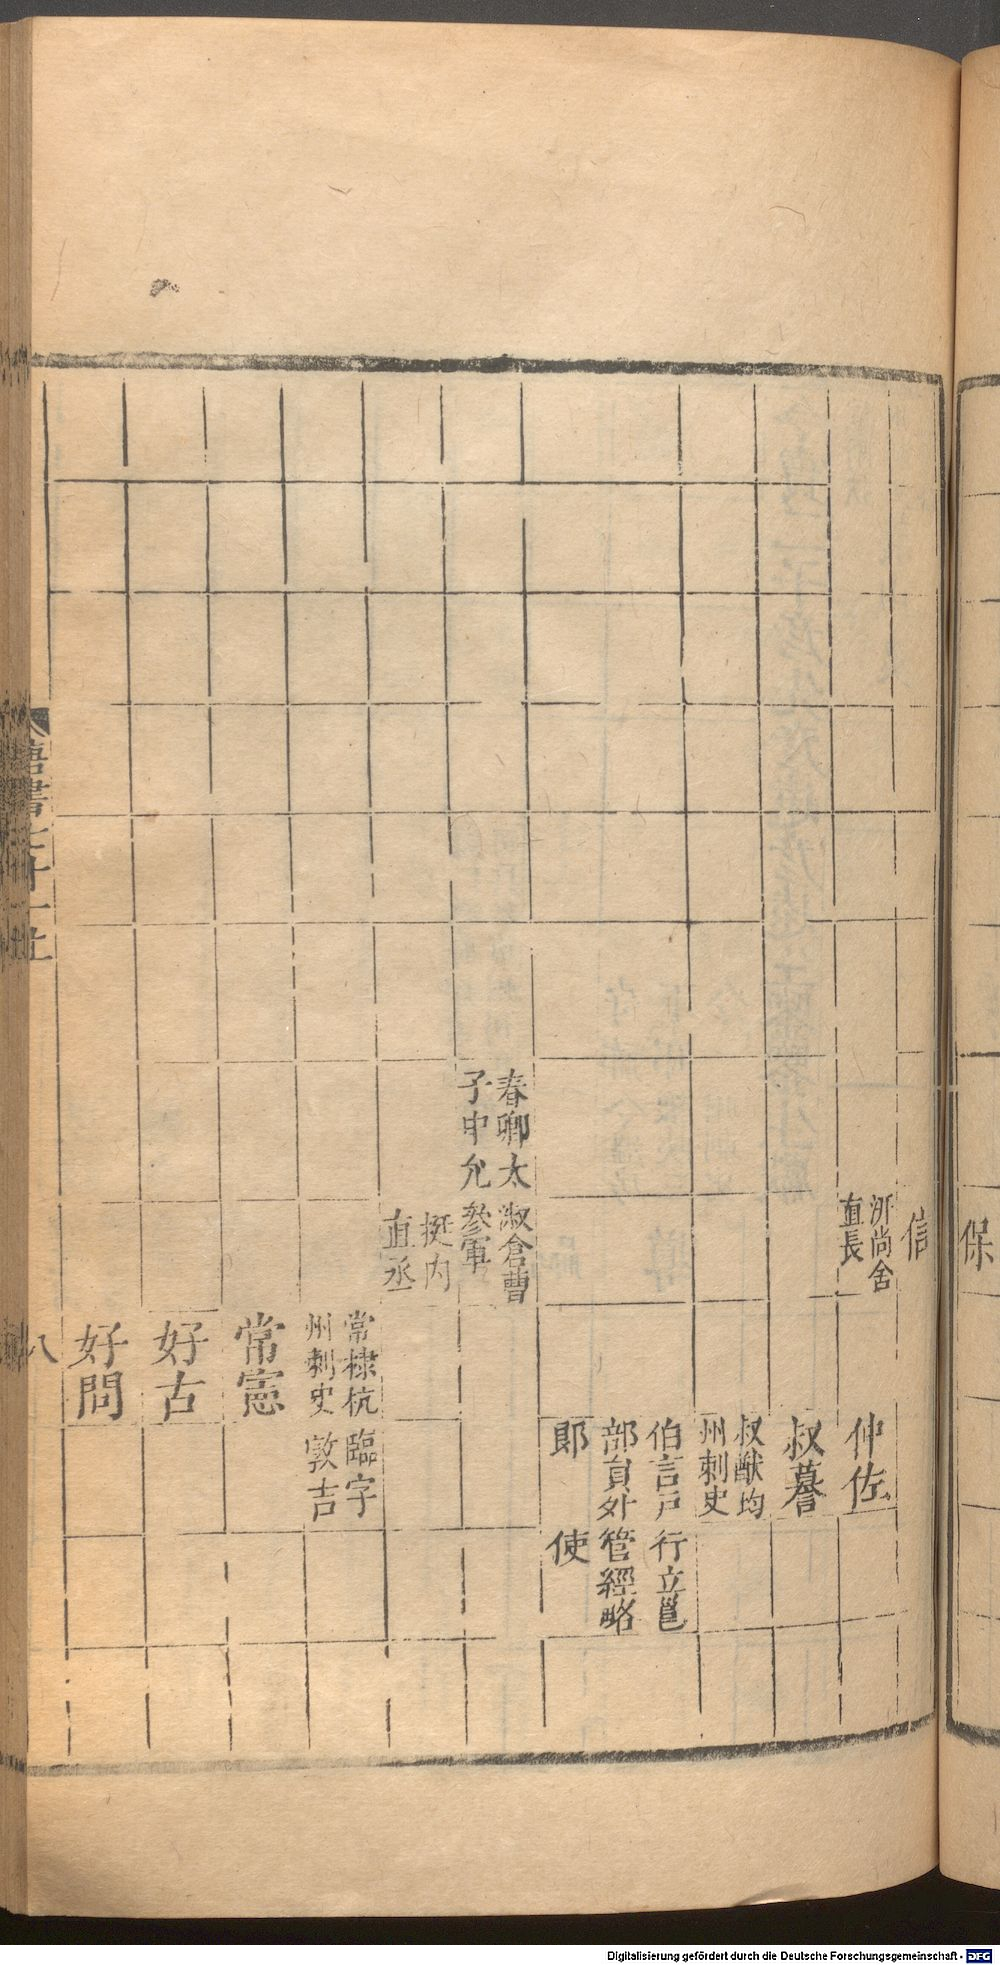 保
信
沂尚舍
直長
仲佐
叔謩
叔猷均
州刺史
伯言戸
部員外
郎
行立邕
管經略
使
春卿太
子中允
淑倉曹
參軍
挺内
直丞
常棣杭
州刺史
臨字
敦吉
常憲
好古
好問
唐書七十一上
八
Digitalisierung gefördert durch die Deutsche Forschungsgemeinschaft - DFG